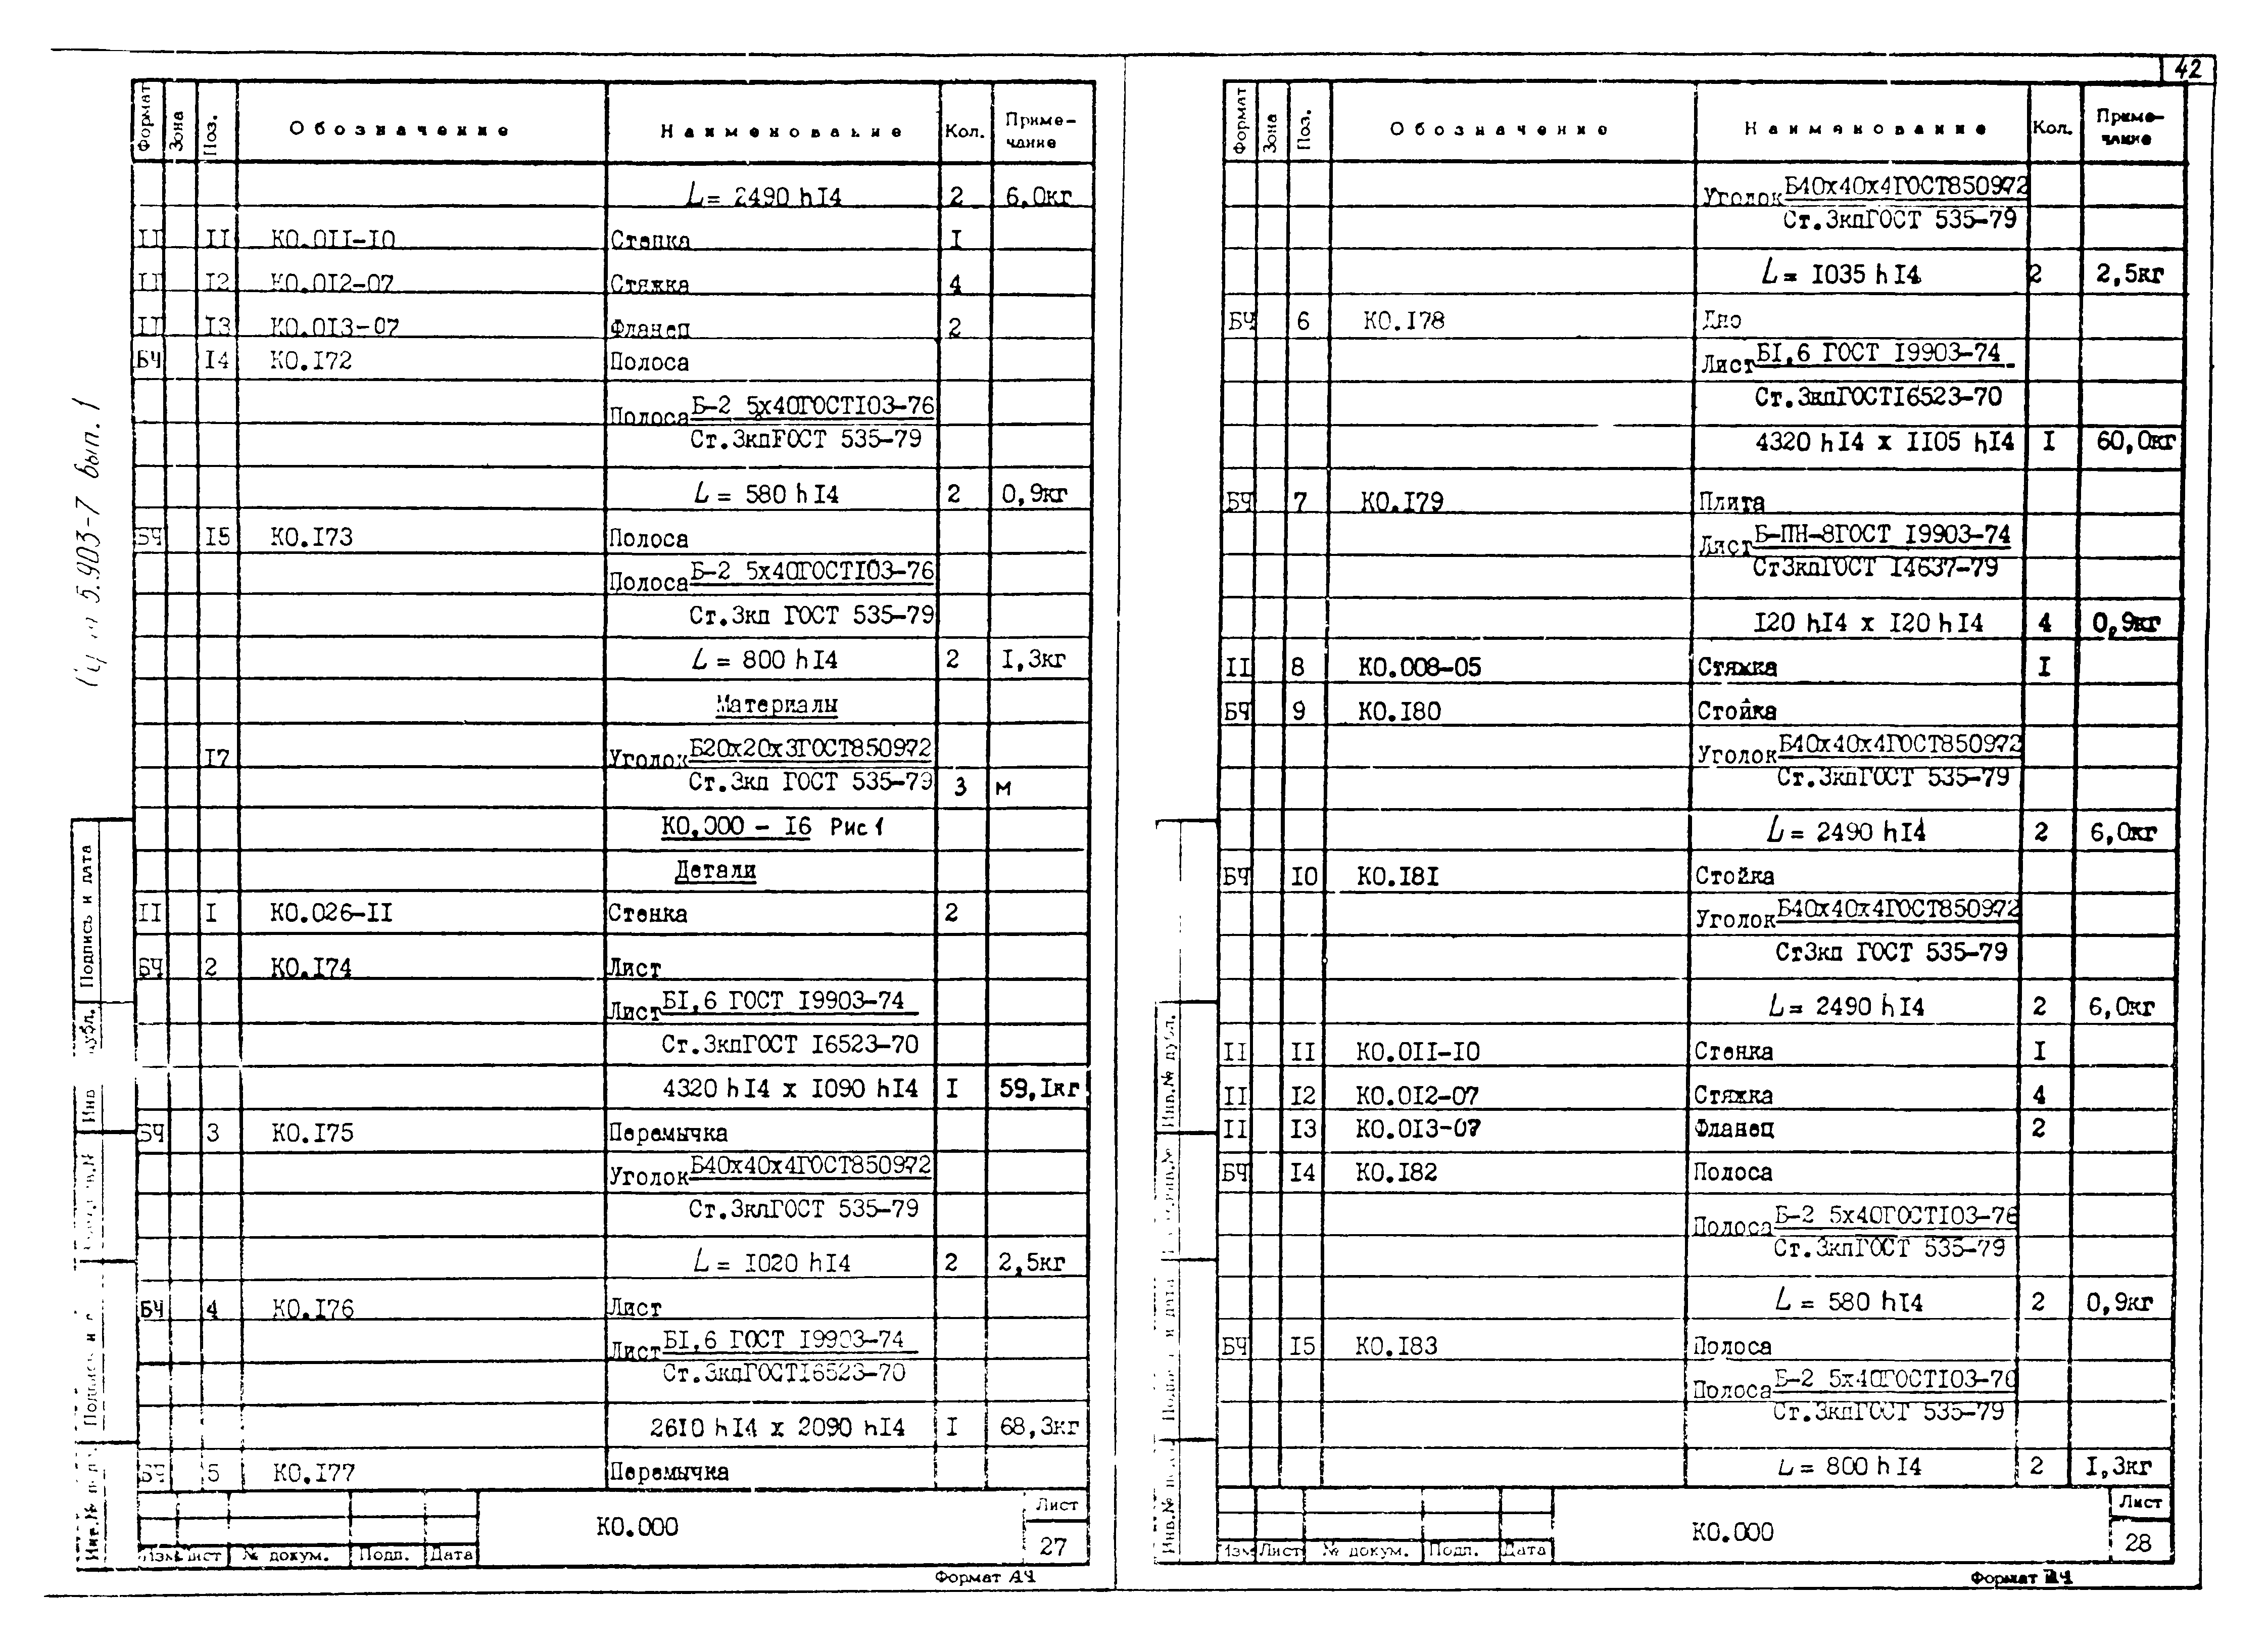 42
Формат Зона Поз. Обозначение Наименование Кол. Приме-
чание
L= 2490 hI4 2 6,0кг
II II КО.0II-I0 Стенка I
II I2 КО.0I2-07 Стяжка 4
II I3 КО.0I3-07 Фланец 2
БЧ I4 КО.I72 Полоса
Полоса Б-2 5х40ГОСТI03-76
Ст.3кпГОСТ 535-79
L= 580 hI4 2 0,9кг
БЧ I5 КО.I73 Полоса
Полоса Б-2 5х40ГОСТI03-76
Ст.3кп ГОСТ 535-79
L= 800 hI4 2 I,3кг
Материалы
I7 Уголок Б20х20х3ГОСТ8509-72
Ст.3кп ГОСТ 535-79 3 м
КО.000 - I6 Рис 1
Детали
II I КО.026-II Стенка 2
БЧ 2 КО.I74 Лист
Лист БI,6 ГОСТ I9903-74
Ст.3кпГОСТ I6523-70
4320 hI4 х I090 hI4 I 59,Iкг
БЧ 3 КО.I75 Перемычка
Уголок Б40х40х4ГОСТ8509-72
Ст.3кпГОСТ 535-79
L= I020 hI4 2 2,5кг
БЧ 4 КО.I76 Лист
Лист БI,6 ГОСТ I9903-74
Ст.3кпГОСТI6523-70
26I0 hI4 х 2090 hI4 I 68,3кг
БЧ 5 КО.I77 Перемычка
КО.000
Лист
27
Изм Лист № докум. Подп. Дата
Формат А4
5.903-7 вып. 1
Подпись и дата
Формат Зона Поз. Обозначение Наименование Кол. Приме-
чание
Уголок Б40х40х4ГОСТ8509-72
Ст.3кпГОСТ 535-79
L= I035 hI4 2 2,5кг
БЧ 6 КО.I78 Дно
Лист БI,6 ГОСТ I9903-74
Ст.3кпГОСТI6523-70
4320 hI4 х II05 hI4 I 60,0кг
БЧ 7 КО.I79 Плита
Лист Б-ПН-8ГОСТ I9903-74
Ст3кпГОСТ I4637-79
I20 hI4 х I20 hI4 4 0,9кг
II 8 КО.008-05 Стяжка I
БЧ 9 КО.I80 Стойка
Уголок Б40х40х4ГОСТ8509-72
Ст.3кпГОСТ 535-79
L= 2490 hI4 2 6,0кг
БЧ I0 КО.I8I Стойка
Уголок Б40х40х4ГОСТ8509-72
Ст3кп ГОСТ 535-79
L= 2490 hI4 2 6,0кг
II II КО.0II-I0 Стенка I
II I2 КО.0I2-07 Стяжка 4
II I3 КО.0I3-07 Фланец 2
БЧ I4 КО.I82 Полоса
Полоса Б-2 5х40ГОСТI03-76
Ст.3кпГОСТ 535-79
L= 580 hI4 2 0,9кг
БЧ I5 КО.I83 Полоса
Полоса Б-2 5х40ГОСТI03-76
Ст.3кпГОСТ 535-79
L= 800 hI4 2 I,3кг
КО.000
Лист
28
Изм Лист № докум. Подп. Дата
Инв.№ дубл.
Формат